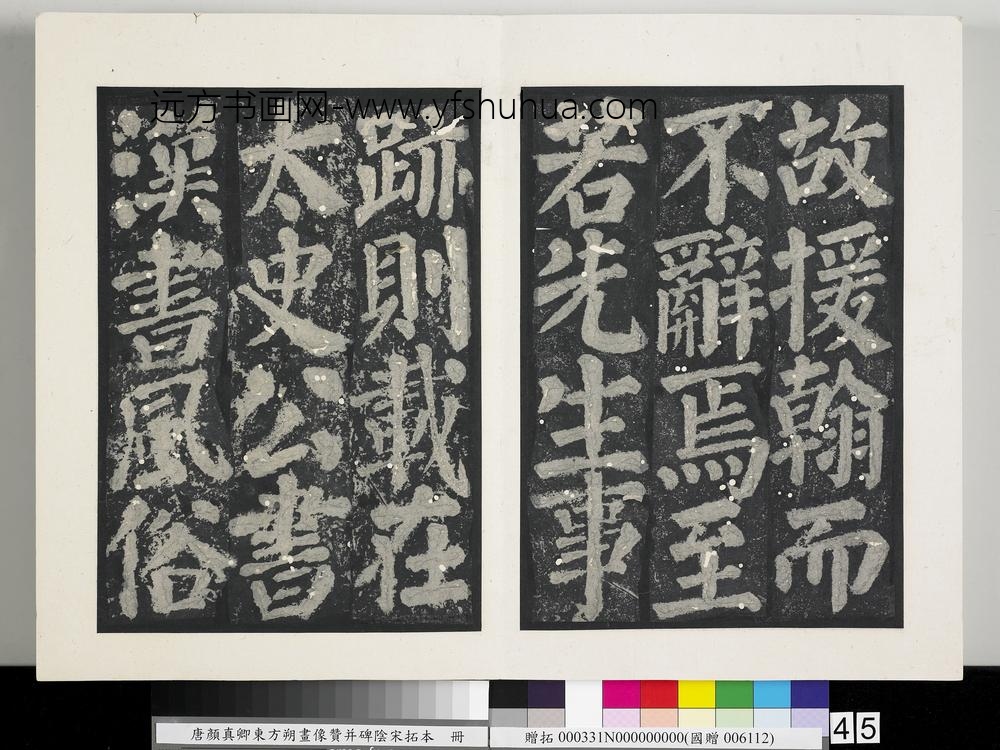 远方书画网-www.yfshuhua.com
故援翰而
不辭焉至
若先生事
跡則載在
太史公書
漢書風俗
唐顏真卿東方朔畫像贊并碑陰宋拓本 冊
贈拓 000331N000000000(國贈 006112)
45